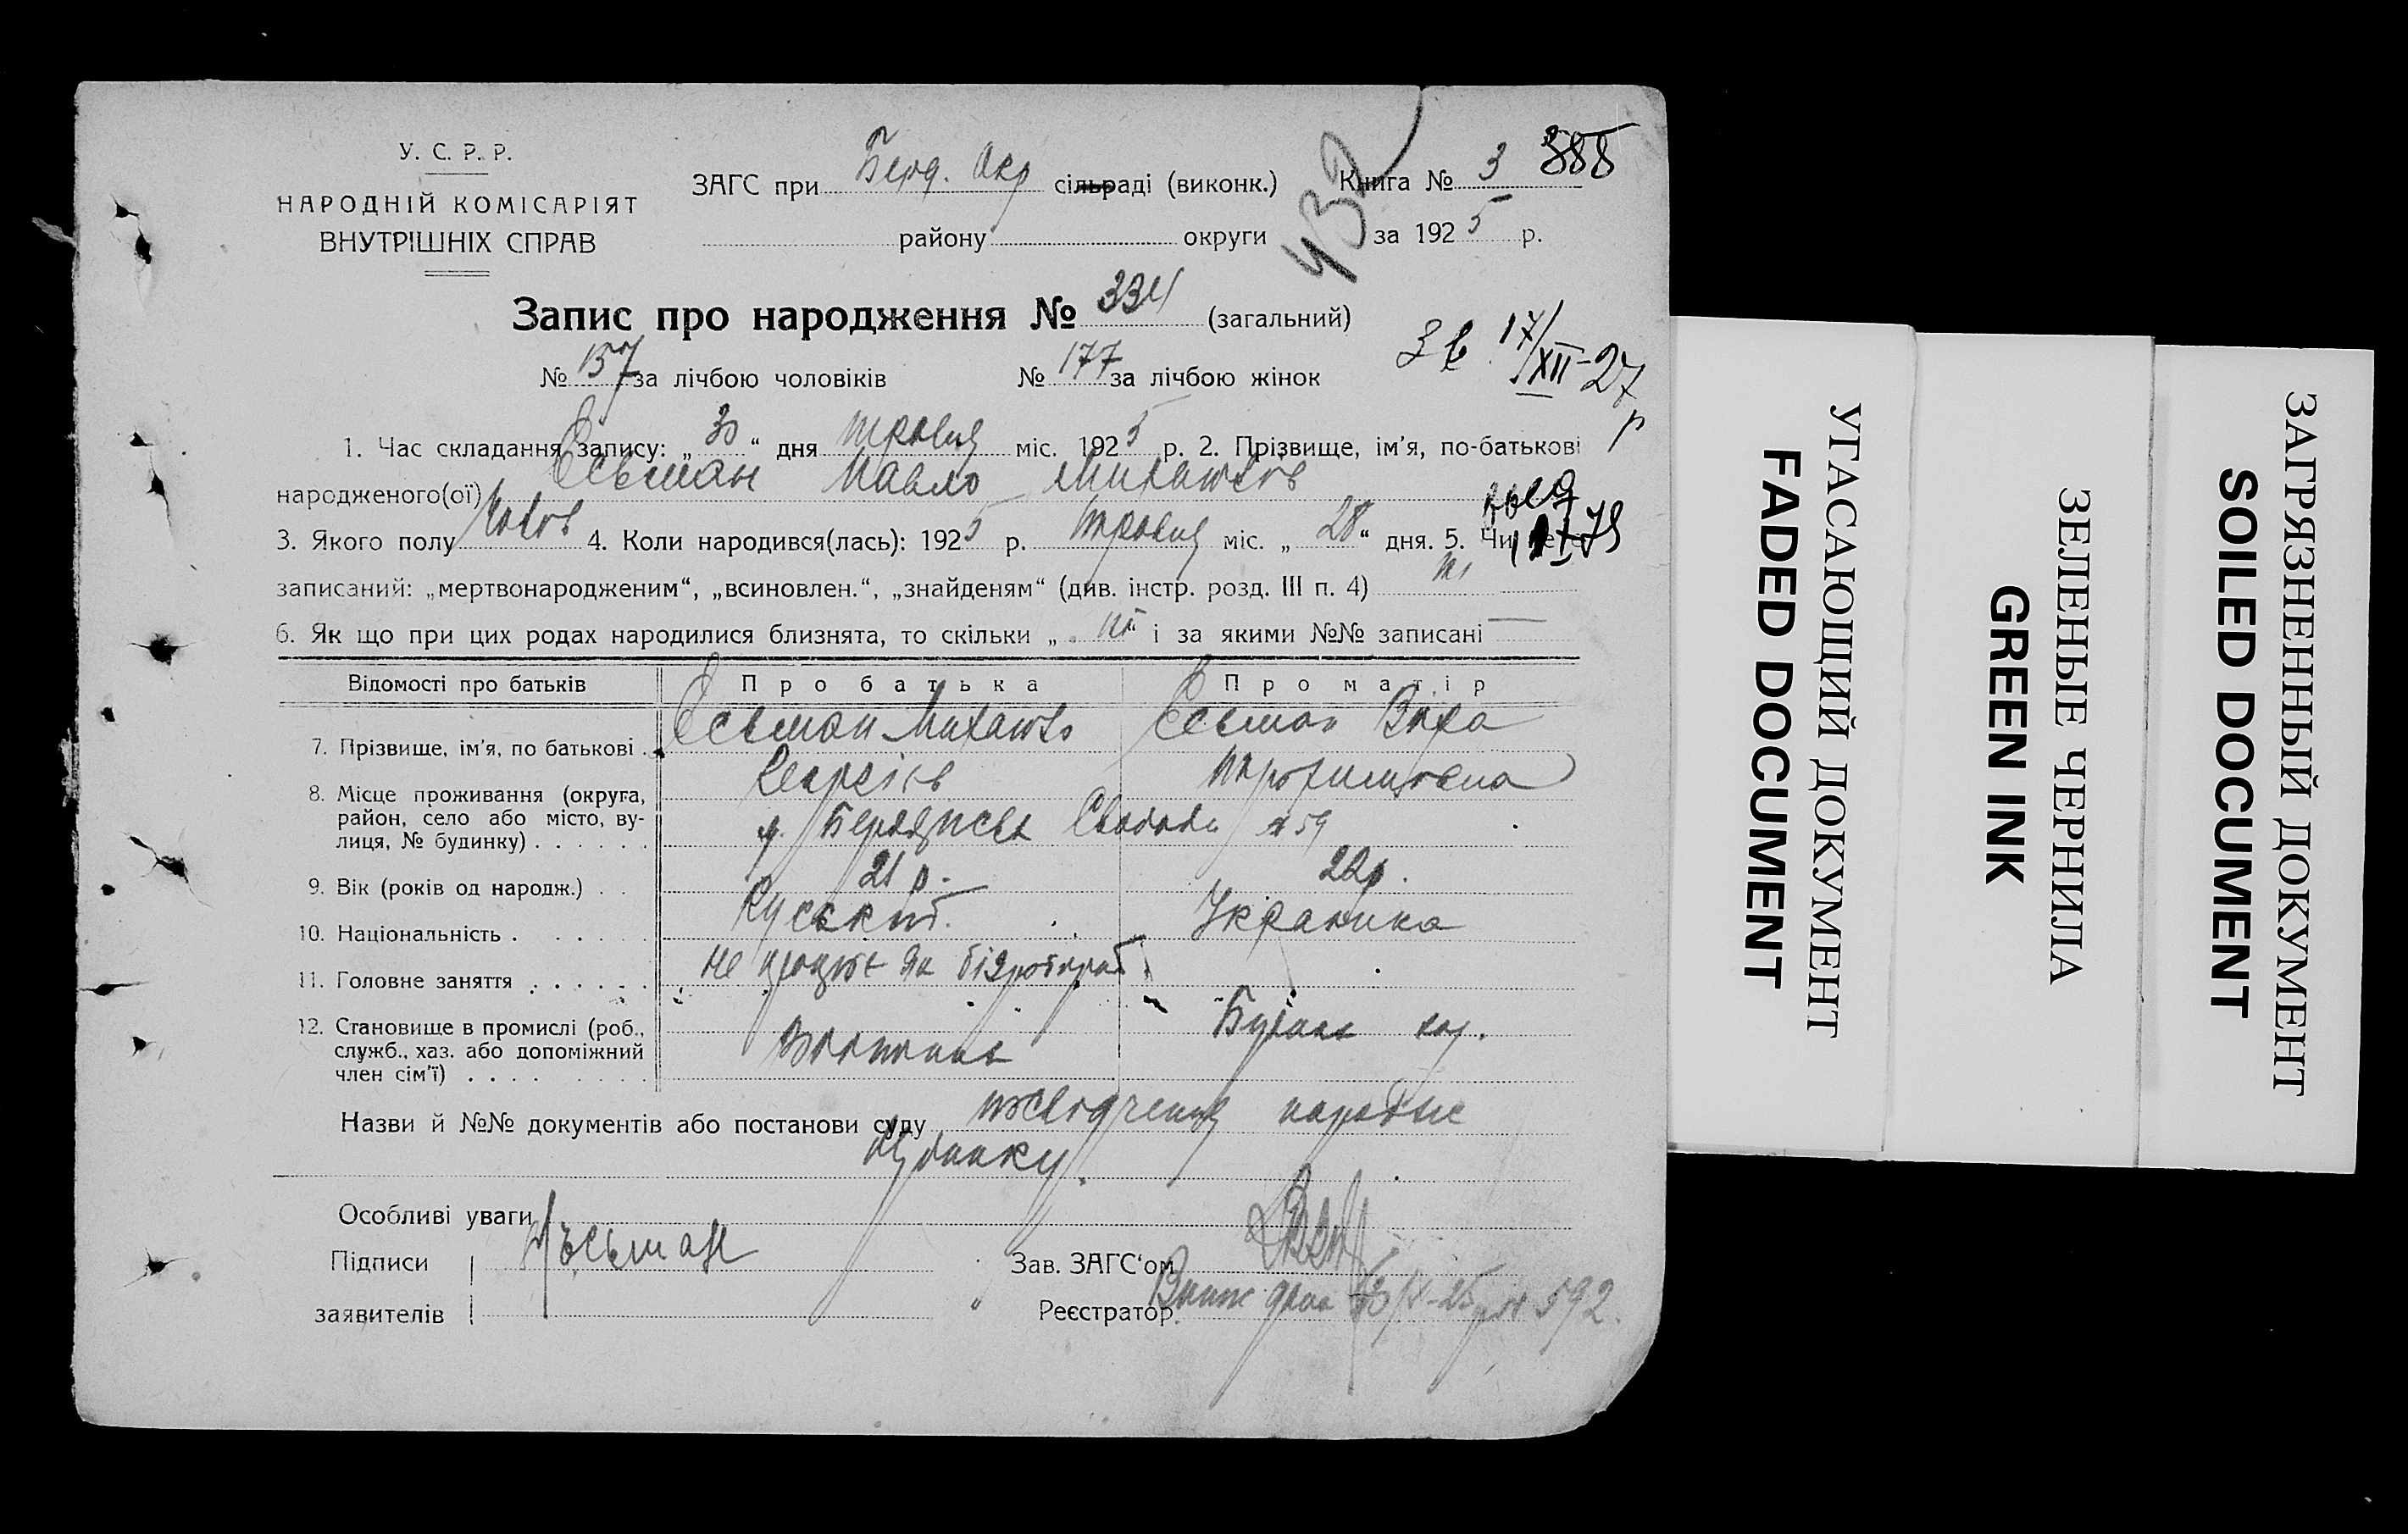 У. С. Р. Р.
НАРОДНІЙ КОМІСАРІЯТ
ВНУТРІШНІХ СПРАВ
ЗАГС при Берд. Окр сільраді (виконк.)
Книга № 3 388
району округи за 1925 р.
432
Запис про народження № 334 (загальний)
№ 157 за лічбою чоловіків № 177 за лічбою жінок
Зв. 17/XII-27 р
1. Час складання запису: „30“ дня травня міс. 1925 р. 2. Прізвище, ім’я, по-батькові
народженого(ої) Есьман Павло
3. Якого полу Чолов 4. Коли народився(лась): 1925 р. травня міс. „28“ дня. 5. Чи
записаний: „мертвонародженим“, „всиновлен.“, „знайденям“ (див. інстр. розд. III п. 4) ні
6. Як що при цих родах народилися близнята, то скільки „ні“ і за якими №№ записані —
Відомості про батьків Про батька Про матір
7. Прізвище, ім’я, по батькові . Есьман Михайло Есьман Віра
8. Місце проживання (округа,
район, село або місто, ву-
лиця, № будинку) . . . . . .
м. Бердичев Свободи № 59
9. Вік (років од народж.) . . 21 р. 22 р.
10. Національність . . . . . . Руський. Українка
11. Головне заняття . . . . . . не працює як безробітный
12. Становище в промислі (роб.,
служб., хаз. або допоміжний
член сім’ї) . . . .
Назви й №№ документів або постанови суду посвідчення
будинку
Особливі уваги
Підписи Есьман Зав. ЗАГС‘ом
заявителів Реєстратор
592.
УГАСАЮЩИЙ ДОКУМЕНТ
FADED DOCUMENT
ЗЕЛЕНЫЕ ЧЕРНИЛА
GREEN INK
ЗАГРЯЗНЕННЫЙ ДОКУМЕНТ
SOILED DOCUMENT